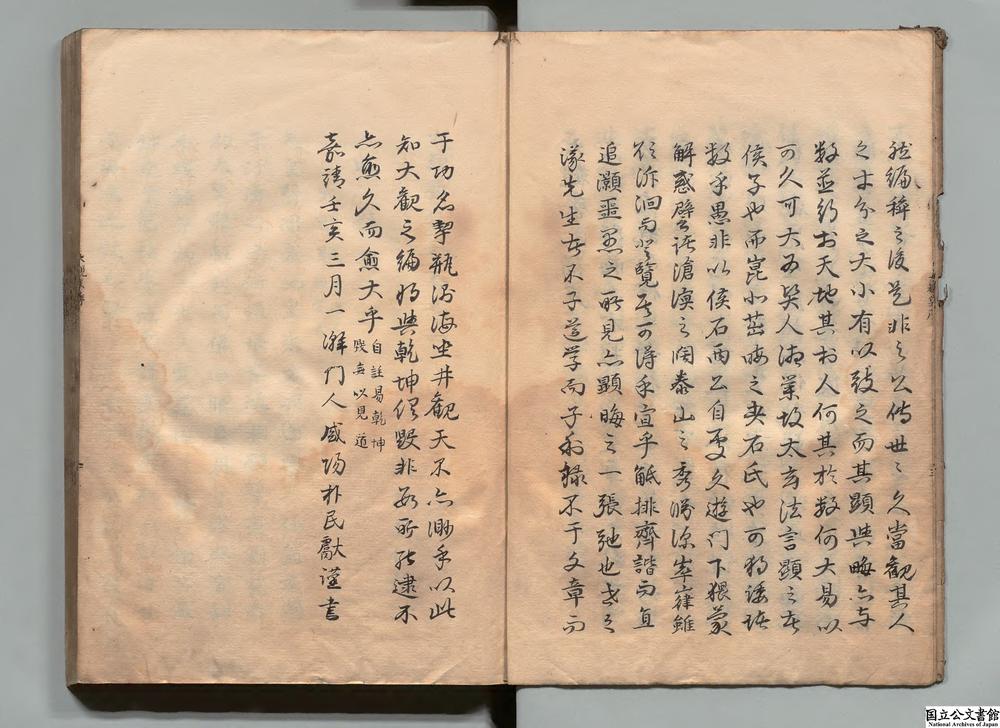 然編稱之後是非之公傳世之久當觀其人
之士分之大小有以致之而其顯與晦亦与
数並行於天地其於人何其於数何大易以
可久可大為賢人德業故太玄法言顯之者
侯子也而崑小茁晦之者石氏也可獨諉諸
数乎愚非以侯石兩公自處久遊门下猥蒙
解惑譬諸滄溟之闊泰山之秀游深崒嵂雖
欲泝洄而登覽其可得乎宜乎觝排齊諧而直
追灝噩墨之所見亦顯晦之一張弛也世之
議先生者不于道学而于利祿不于文章而
于功名挈瓶測海坐井觀天不亦渺乎以此
知大觀之編将與乾坤俱毀非数所能逮不
亦愈久而愈大乎
自註易乾坤
毀無以見道
嘉靖壬亥三月一澥门人盛
朴民獻謹書
国立公文書館
National Archives of Japan